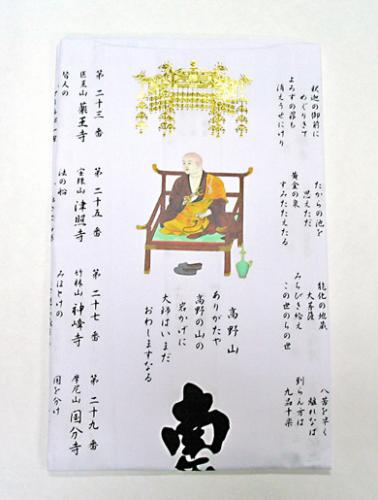 釈迦の御前に
めぐりきて
よろずの罪も
消えうせにけり
たからの池を
思えただ
黄金の泉
すみたたえたる
能化の地蔵
大菩薩
みちびき給え
この世のちの世
八苦を早く
離れなば
到らん方は
九品十楽
高野山
ありがたや
高野の山の
岩かげに
大師はいまだ
おわしますなる
南
第二十三番
医王山 薬王寺
皆人の
第二十五番
宝珠山 津照寺
法の船
第二十七番
竹林山 神峰寺
みほとけの
第二十九番
摩尼山 国分寺
国を分け